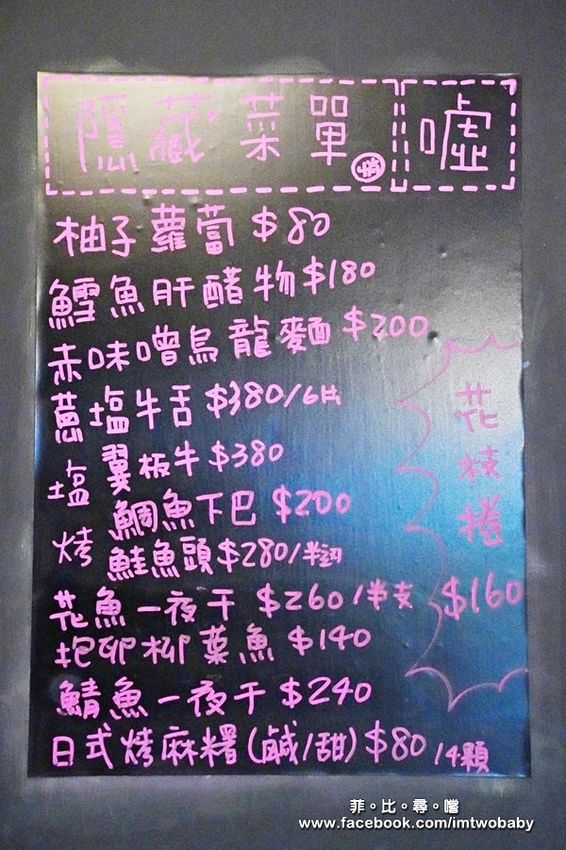 隱藏菜單 噓
柚子蘿蔔 $80
鱈魚肝醋物 $180
赤味噌烏龍麵 $200
蔥塩牛舌 $380/6片
塩烤
翼板牛 $380
鯛魚下巴 $200
鮭魚頭 $280/半翅
花魚一夜干 $260/半支
抱卵柳葉魚 $140
鯖魚一夜干 $240
日式烤麻糬(鹹/甜) $80/4顆
花枝捲
$160
菲。比。尋。嚐
www.facebook.com/imtwobaby